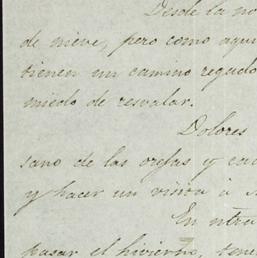 Desde la no
de nieve, pero como aqui
tienen un camino regado
miedo de resvalar.
Dolores
sano de las orejas y ca
y hacer un visita á
En ntra
pasar el hivierno, tene